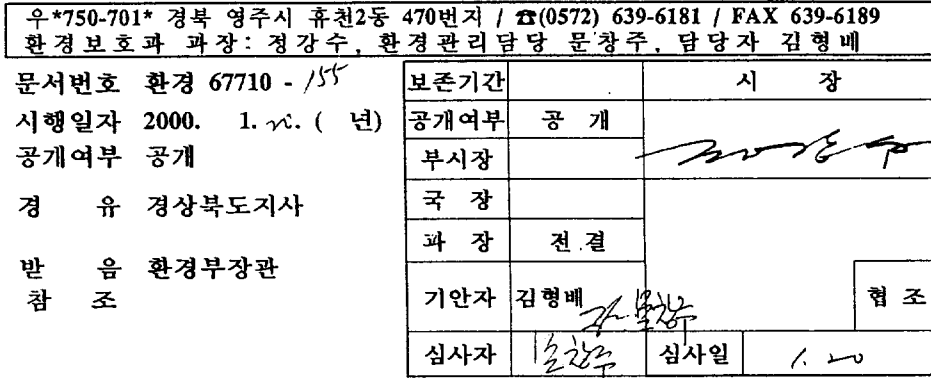 우*750-701* 경북 영주시 휴천2동 470번지 / ☎(0572) 639-6181 / FAX 639-6189
환경보호과 과장: 정강수, 환경관리담당 문창주, 담당자 김형배
문서번호 환경 67710 - 155
시행일자 2000. 1. 20. ( 년)
공개여부 공개
경 유 경상북도지사
받 음 환경부장관
참 조
보존기간 시 장
공개여부 공 개
부시장
국 장
과 장 전결
기안자 김형배 협 조
심사자 문창주 심사일 1. 20